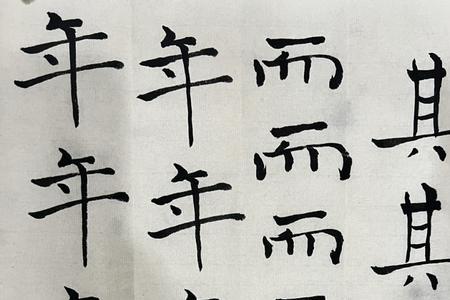 其其
而而而
年年
年年